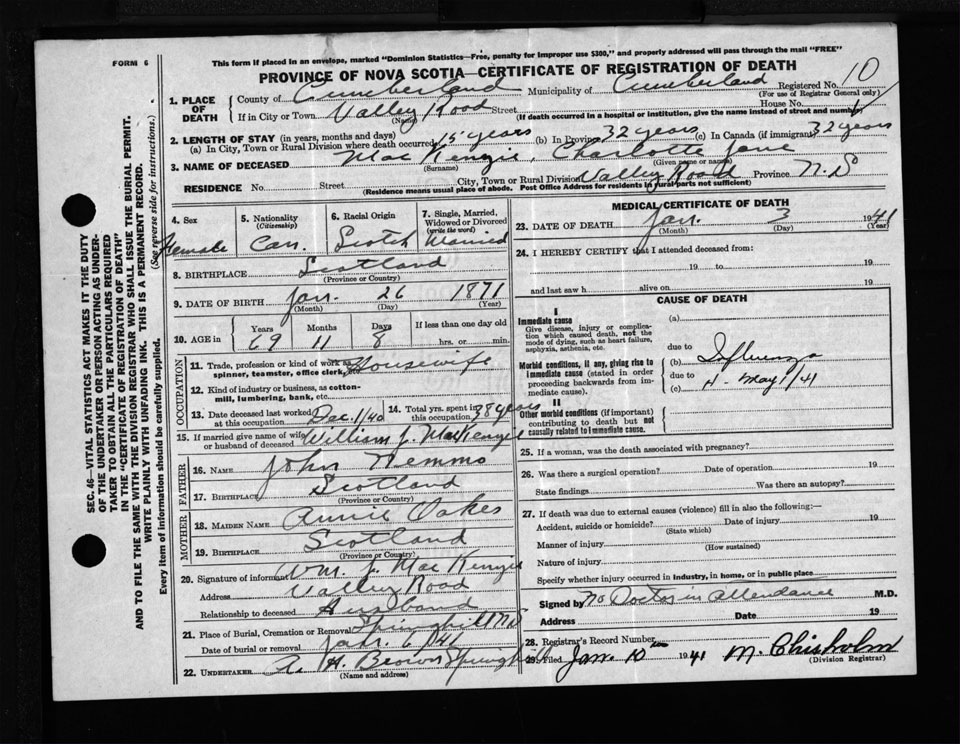 FORM 6
This form if placed in an envelope, marked "Dominion Statistics—Free, penalty for improper use $300," and properly addressed will pass through the mail "FREE"
PROVINCE OF NOVA SCOTIA—CERTIFICATE OF REGISTRATION OF DEATH
1. PLACE OF DEATH County of Cumberland Municipality of Cumberland Registered No. 10
(For use of Registrar General only)
If in City or Town Valley Road Street House No.
(Name) (If death occurred in a hospital or institution, give the name instead of street and number)
2. LENGTH OF STAY (in years, months and days)
(a) In City, Town or Rural Division where death occurred 15 years (b) In Province 32 years (c) In Canada (if immigrant) 32 years
3. NAME OF DECEASED MacKenzie, Charlotte Jane
(Surname) (Given name or names)
RESIDENCE No. Street City, Town or Rural Division Valley Road Province N.S
(Residence means usual place of abode. Post Office Address for residents in rural parts not sufficient)
4. Sex Female
5. Nationality (Citizenship) Can.
6. Racial Origin Scotch
7. Single, Married, Widowed or Divorced (write the word) Married
8. BIRTHPLACE Scotland
(Province or Country)
9. DATE OF BIRTH Jan. 26 1871
(Month) (Day) (Year)
10. AGE in Years Months Days If less than one day old
69 11 8 hrs. or min.
OCCUPATION
11. Trade, profession or kind of work as spinner, teamster, office clerk, Housewife
12. Kind of industry or business, as cotton-mill, lumbering, bank, etc.
13. Date deceased last worked at this occupation Dec. 1/40
14. Total yrs. spent in this occupation 38 years
15. If married give name of wife or husband of deceased William J. MacKenzie
FATHER
16. NAME John Nemmo
17. BIRTHPLACE Scotland
(Province or Country)
MOTHER
18. MAIDEN NAME Annie Oakes
19. BIRTHPLACE Scotland
(Province or Country)
20. Signature of informant Wm. J. MacKenzie
Address Valley Road
Relationship to deceased Husband
21. Place of Burial, Cremation or Removal Springhill NS
Date of burial or removal Jan. 6/41
22. UNDERTAKER A. H. Brown Springhill
(Name and address)
MEDICAL CERTIFICATE OF DEATH
23. DATE OF DEATH Jan. 3 1941
(Month) (Day) (Year)
24. I HEREBY CERTIFY that I attended deceased from:
19 to 19
and last saw h alive on 19
CAUSE OF DEATH
I
Immediate cause
Give disease, injury or complication which caused death, not the mode of dying, such as heart failure, asphyxia, asthenia, etc.
(a)
due to
Morbid conditions, if any, giving rise to immediate cause (stated in order proceeding backwards from immediate cause).
(b) Influenza
due to
(c) May 1/41
II
Other morbid conditions (if important) contributing to death but not causally related to immediate cause.
25. If a woman, was the death associated with pregnancy?
26. Was there a surgical operation? Date of operation 19
State findings Was there an autopsy?
27. If death was due to external causes (violence) fill in also the following:—
Accident, suicide or homicide? Date of injury 19
(State which)
Manner of injury
(How sustained)
Nature of injury
Specify whether injury occurred in industry, in home, or in public place
Signed by No Doctor in attendance M.D.
Address Date 19
28. Registrar's Record Number
29. Filed Jan. 10 1941 M. Chisholm
(Division Registrar)
SEC. 46—VITAL STATISTICS ACT MAKES IT THE DUTY
OF THE UNDERTAKER OR PERSON ACTING AS UNDER-
TAKER TO OBTAIN ALL THE PARTICULARS REQUIRED
IN THE "CERTIFICATE OF REGISTRATION OF DEATH"
AND TO FILE THE SAME WITH THE DIVISION REGISTRAR WHO SHALL ISSUE THE BURIAL PERMIT.
WRITE PLAINLY WITH UNFADING INK. THIS IS A PERMANENT RECORD.
(See reverse side for instructions.)
Every item of information should be carefully supplied.